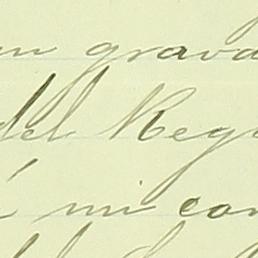 un grava
del Reg
á mi con